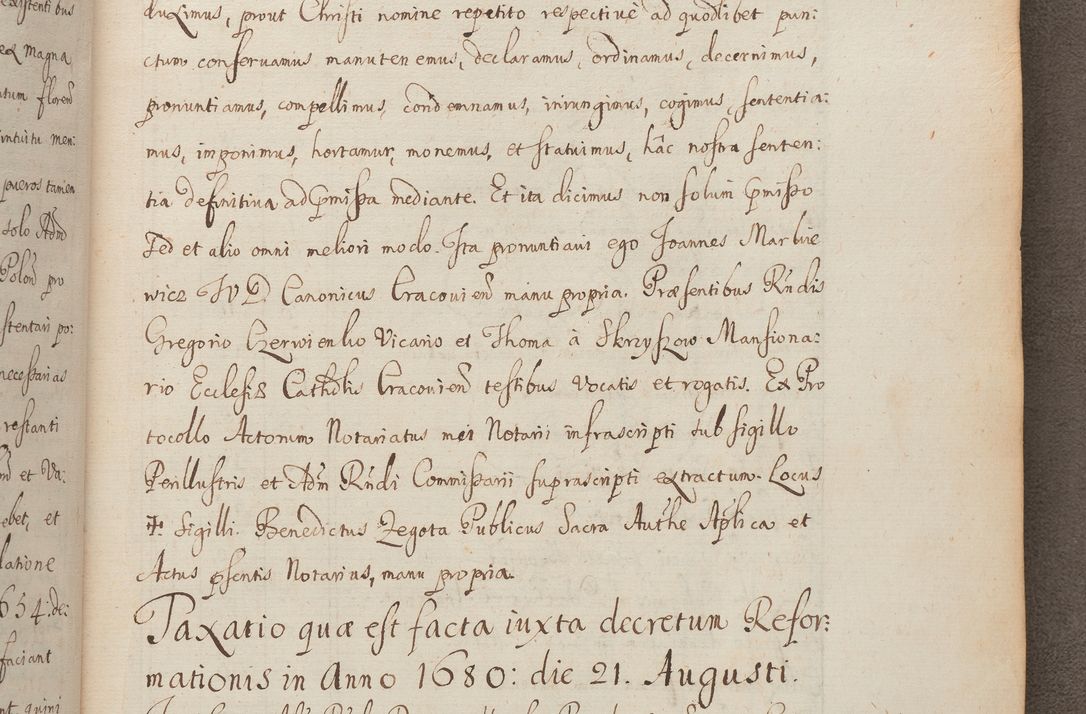 existenti bus
ex Magna
florend
intuitu men:
pueros tamen
solo Adm
Polon pro
stentari po:
necessarias
restanti
et Va:
ebet, et
latione
654: de:
faciant
quini
duximus, prout Christi nomine repetito respective ad quodlibet pun:
ctum conseruamus manutenemus, declaramus, ordinamus, decernimus,
pronuntiamus, compellimus, condemnamus, iniungimus, cogimus, sententia:
mus, imponimus, hortamur, monemus, et statuimus, hac nostra senten:
tia definitiua ad pmissa mediante. Et ita dicimus non solum pmisso
sed et alio omni meliori modo. Ita pronuntiaui ego Joannes Markie
wicz JVD Canonicus Cracouien manu propria. Præsentibus Rndis
Gregorio Czerwienko Vicario et Thoma à Skrzyszow Mansiona:
rio Ecclesiæ Cathdlis Cracouien testibus vocatis et rogatis. Ex Pro
tocollo Actorum Notariatus mei Notarii infrascripti sub sigillo
Perillustris et Adm Rndi Commissarii suprascripti extractum. Locus
✠ Sigilli. Benedictus Zegota Publicus Sacra Authe Aplica et
Actus psentis Notarius, manu propria.
Taxatio quæ est facta iuxta decretum Refor:
mationis in Anno 1680: die 21. Augusti.